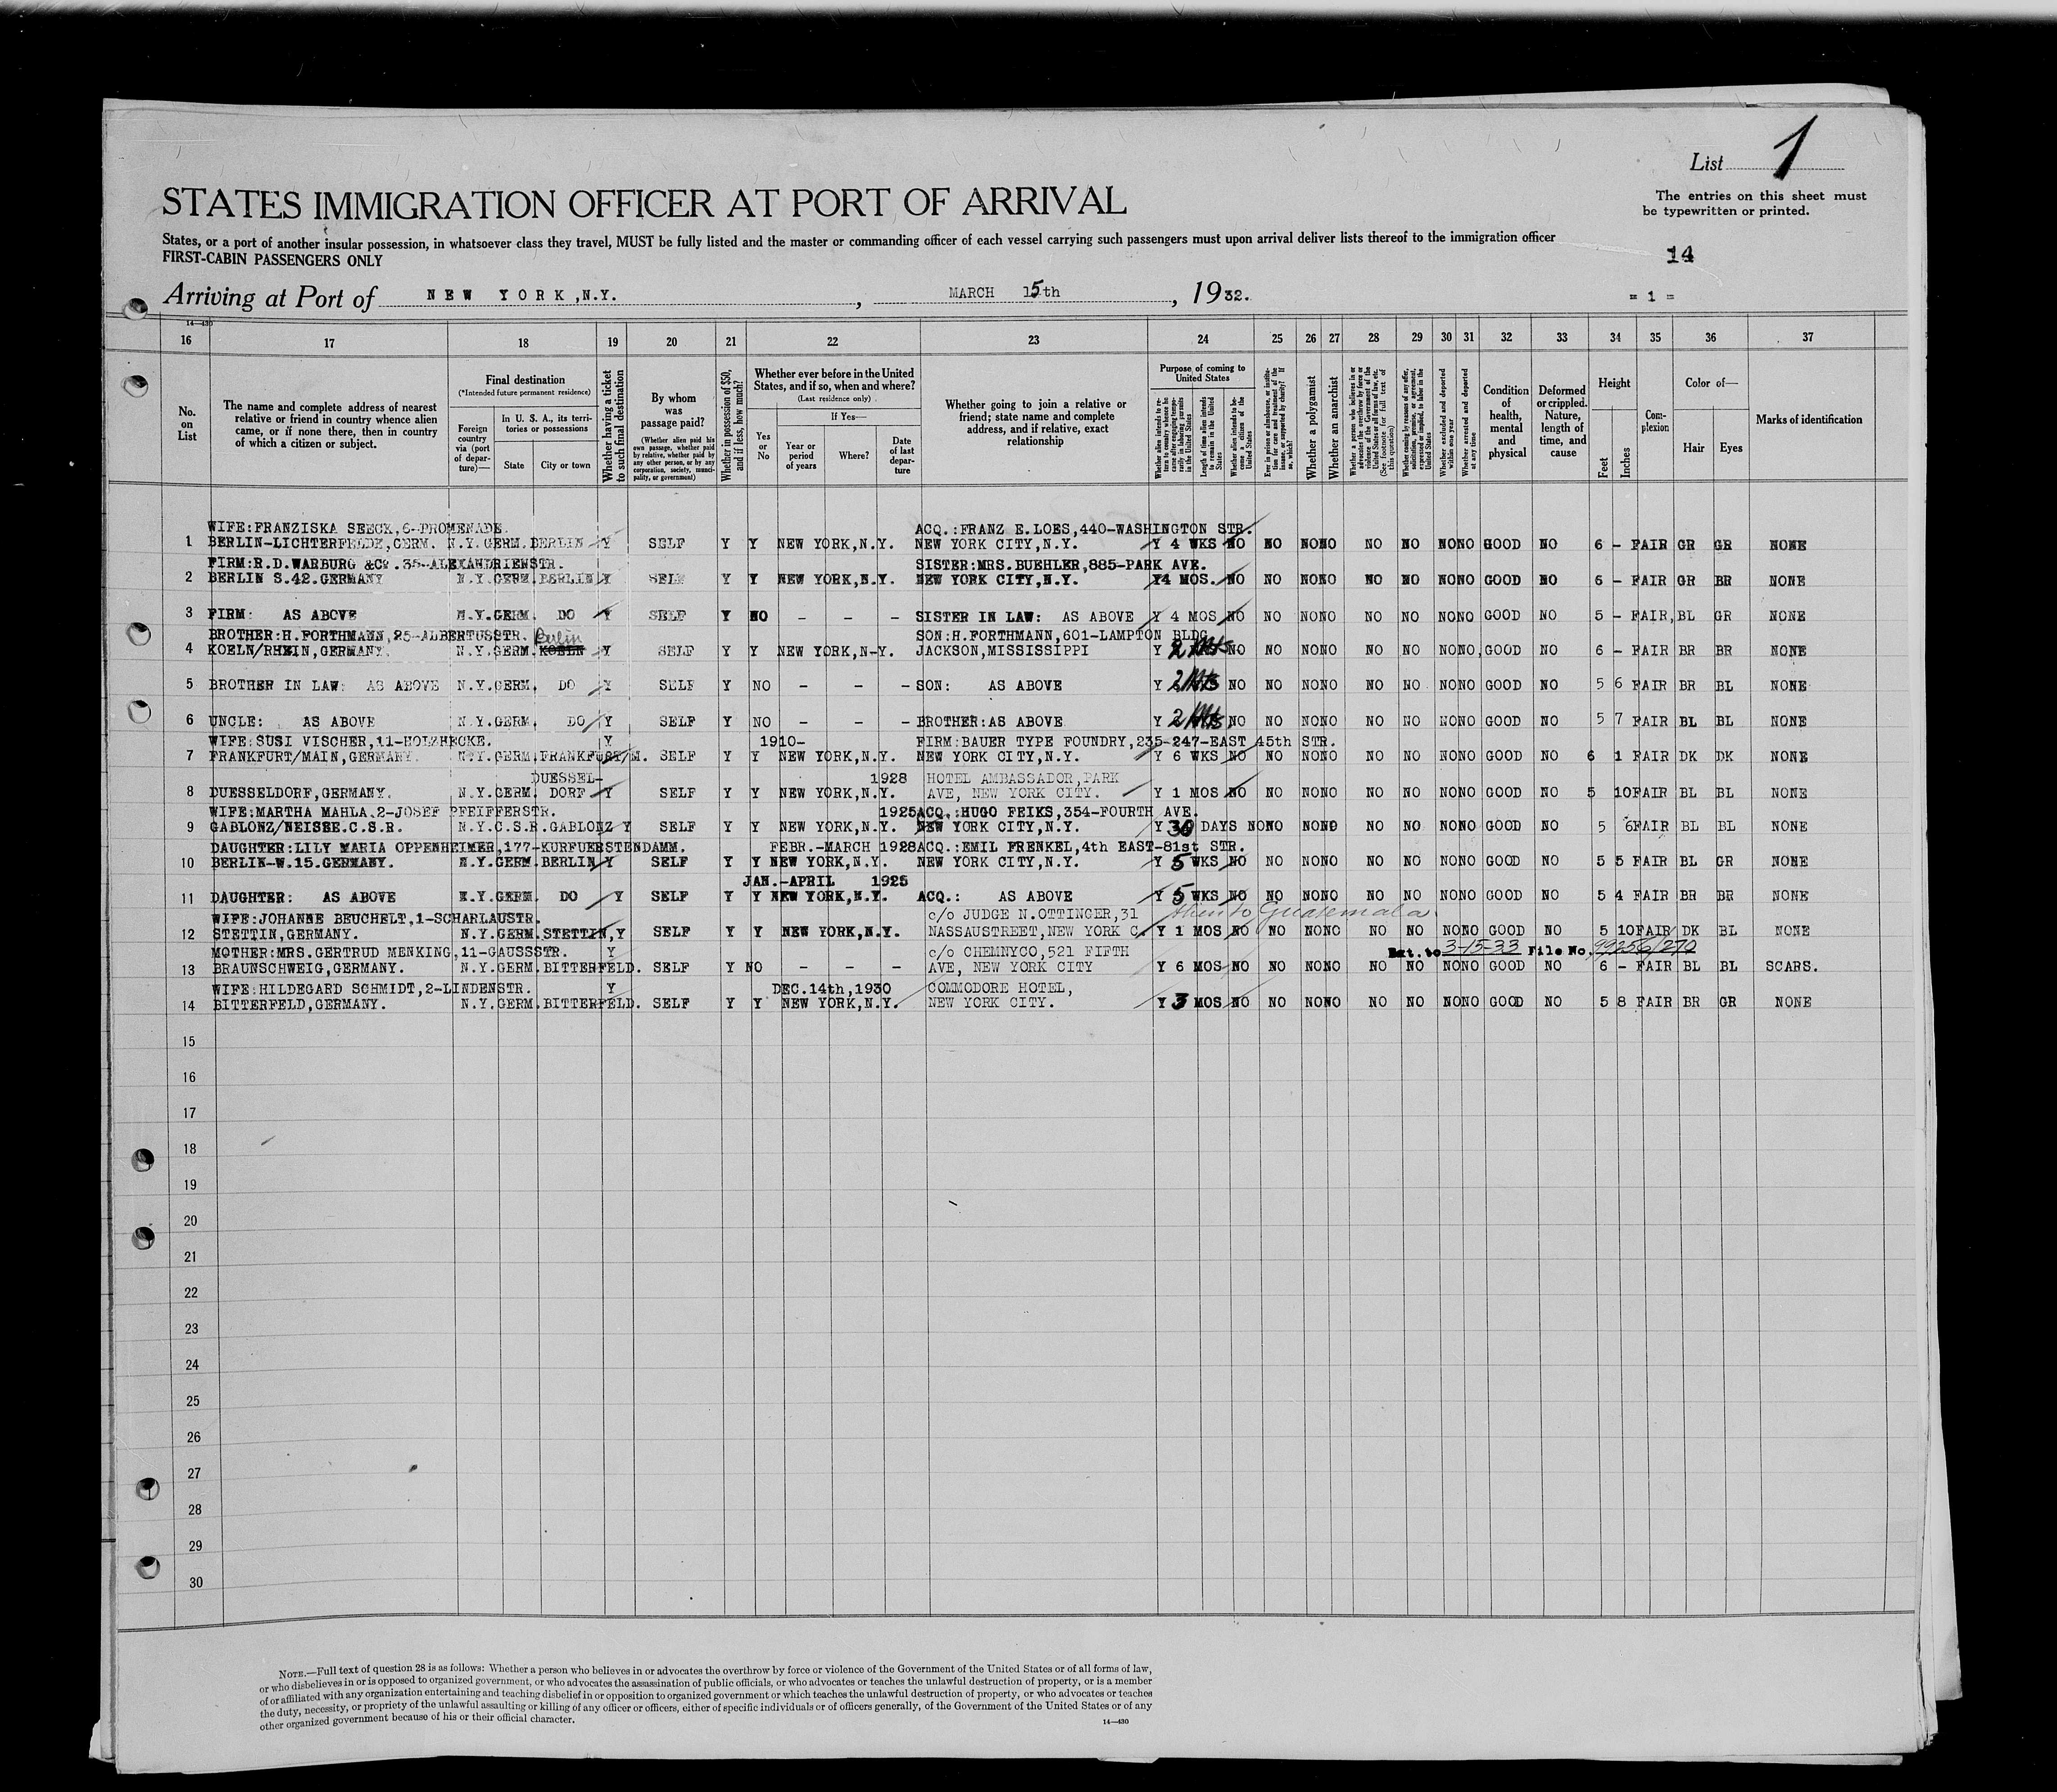 List 1
STATES IMMIGRATION OFFICER AT PORT OF ARRIVAL
The entries on this sheet must
be typewritten or printed.
States, or a port of another insular possession, in whatsoever class they travel, MUST be fully listed and the master or commanding officer of each vessel carrying such passengers must upon arrival deliver lists thereof to the immigration officer
FIRST-CABIN PASSENGERS ONLY
14
Arriving at Port of NEW YORK,N.Y. , MARCH 15th , 1932.
= 1 =
14—430
16 17 18 19 20 21 22 23 24 25 26 27 28 29 30 31 32 33 34 35 36 37
No. on List
The name and complete address of nearest relative or friend in country whence alien came, or if none there, then in country of which a citizen or subject.
Final destination
(*Intended future permanent residence)
Foreign country via (port of departure)—
In U. S. A., its territories or possessions
State
City or town
Whether having a ticket to such final destination
By whom was passage paid?
(Whether alien paid his own passage, whether paid by relative, whether paid by any other person, or by any corporation, society, municipality, or government)
Whether in possession of $50, and if less, how much?
Whether ever before in the United States, and if so, when and where?
(Last residence only)
If Yes—
Yes or No
Year or period of years
Where?
Date of last departure
Whether going to join a relative or friend; state name and complete address, and if relative, exact relationship
Purpose of coming to United States
Length of time alien intends to remain in the United States
Whether alien intends to become a citizen of the United States
Whether a polygamist
Whether an anarchist
Condition of health, mental and physical
Deformed or crippled. Nature, length of time, and cause
Height
Feet
Inches
Complexion
Color of—
Hair
Eyes
Marks of identification
WIFE:FRANZISKA SEECK,6-PROMENADE. ACQ.:FRANZ E.LOES,440-WASHINGTON STR.
1 BERLIN-LICHTERFELDE,GERM. N.Y.GERM.BERLIN Y SELF Y Y NEW YORK,N.Y. NEW YORK CITY,N.Y. Y 4 WKS NO NO NO NO NO NO NO NO GOOD NO 6 - FAIR GR GR NONE
FIRM:R.D.WARBURG &Co.35-ALEXANDRIENSTR. SISTER:MRS.BUEHLER,885-PARK AVE.
2 BERLIN S.42.GERMANY N.Y.GERM.BERLIN Y SELF Y Y NEW YORK,N.Y. NEW YORK CITY,N.Y. Y 4 MOS. NO NO NO NO NO NO NO NO GOOD NO 6 - FAIR GR BR NONE
3 FIRM: AS ABOVE N.Y.GERM. DO Y SELF Y NO - - - SISTER IN LAW: AS ABOVE Y 4 MOS NO NO NO NO NO NO NO NO GOOD NO 5 - FAIR BL GR NONE
BROTHER:H.FORTHMANN,25-ALBERTUSSTR. Berlin SON:H.FORTHMANN,601-LAMPTON BLDG
4 KOELN/RHEIN,GERMANY. N.Y.GERM.KOELN Y SELF Y Y NEW YORK,N-Y. JACKSON,MISSISSIPPI Y 2 NO NO NO NO NO NO NO NO GOOD NO 6 - FAIR BR BR NONE
5 BROTHER IN LAW: AS ABOVE N.Y.GERM. DO Y SELF Y NO - - - SON: AS ABOVE Y 2 NO NO NO NO NO NO NO NO GOOD NO 5 6 FAIR BR BL NONE
6 UNCLE: AS ABOVE N.Y.GERM. DO Y SELF Y NO - - - BROTHER:AS ABOVE Y 2 NO NO NO NO NO NO NO NO GOOD NO 5 7 FAIR BL BL NONE
WIFE:SUSI VISCHER,11-HOLZHECKE. Y 1910- FIRM:BAUER TYPE FOUNDRY,235-247-EAST 45th STR.
7 FRANKFURT/MAIN,GERMANY. N.Y.GERM.FRANKFURT/M. SELF Y Y NEW YORK,N.Y. NEW YORK CITY,N.Y. Y 6 WKS NO NO NO NO NO NO NO NO GOOD NO 6 1 FAIR DK DK NONE
DUESSEL- 1928 HOTEL AMBASSADOR,PARK
8 DUESSELDORF,GERMANY. N.Y.GERM. DORF Y SELF Y Y NEW YORK,N.Y. AVE, NEW YORK CITY. Y 1 MOS NO NO NO NO NO NO NO NO GOOD NO 5 10 FAIR BL BL NONE
WIFE:MARTHA MAHLA.2-JOSEF PFEIFFERSTR. 1925 ACQ.:HUGO FEIKS,354-FOURTH AVE.
9 GABLONZ/NEISSE.C.S.R. N.Y.C.S.R.GABLONZ Y SELF Y Y NEW YORK,N.Y. NEW YORK CITY,N.Y. Y 30 DAYS NO NO NO NO NO NO NO NO GOOD NO 5 6 FAIR BL BL NONE
DAUGHTER:LILY MARIA OPPENHEIMER,177-KURFUERSTENDAMM. FEBR.-MARCH 1928 ACQ.:EMIL FRENKEL,4th EAST-81st STR.
10 BERLIN-W.15.GERMANY. N.Y.GERM.BERLIN Y SELF Y Y NEW YORK,N.Y. NEW YORK CITY,N.Y. Y 5 WKS NO NO NO NO NO NO NO NO GOOD NO 5 5 FAIR BL GR NONE
JAN.-APRIL 1925
11 DAUGHTER: AS ABOVE N.Y.GERM. DO Y SELF Y Y NEW YORK,N.Y. ACQ.: AS ABOVE Y 5 WKS NO NO NO NO NO NO NO NO GOOD NO 5 4 FAIR BR BR NONE
WIFE:JOHANNE BEUCHELT,1-SCHARLAUSTR. c/o JUDGE N.OTTINGER,31 then to Guatemala
12 STETTIN,GERMANY. N.Y.GERM.STETTIN,Y SELF Y Y NEW YORK,N.Y. NASSAUSTREET,NEW YORK C. Y 1 MOS NO NO NO NO NO NO NO NO GOOD NO 5 10 FAIR DK BL NONE
MOTHER:MRS.GERTRUD MENKING,11-GAUSSSTR. Y c/o CHEMNYCO,521 FIFTH Ext.to 3-15-33 File No. 99256/270
13 BRAUNSCHWEIG,GERMANY. N.Y.GERM.BITTERFELD. SELF Y NO - - - AVE, NEW YORK CITY Y 6 MOS NO NO NO NO NO NO NO NO GOOD NO 6 - FAIR BL BL SCARS.
WIFE:HILDEGARD SCHMIDT,2-LINDENSTR. Y DEC.14th,1930 COMMODORE HOTEL,
14 BITTERFELD,GERMANY. N.Y.GERM.BITTERFELD. SELF Y Y NEW YORK,N.Y. NEW YORK CITY. Y 3 MOS NO NO NO NO NO NO NO NO GOOD NO 5 8 FAIR BR GR NONE
15
16
17
18
19
20
21
22
23
24
25
26
27
28
29
30
NOTE.—Full text of question 28 is as follows: Whether a person who believes in or advocates the overthrow by force or violence of the Government of the United States or of all forms of law,
or who disbelieves in or is opposed to organized government, or who advocates the assassination of public officials, or who advocates or teaches the unlawful destruction of property, or is a member
of or affiliated with any organization entertaining and teaching disbelief in or opposition to organized government or which teaches the unlawful destruction of property, or who advocates or teaches
the duty, necessity, or propriety of the unlawful assaulting or killing of any officer or officers, either of specific individuals or of officers generally, of the Government of the United States or of any
other organized government because of his or their official character.
14—430